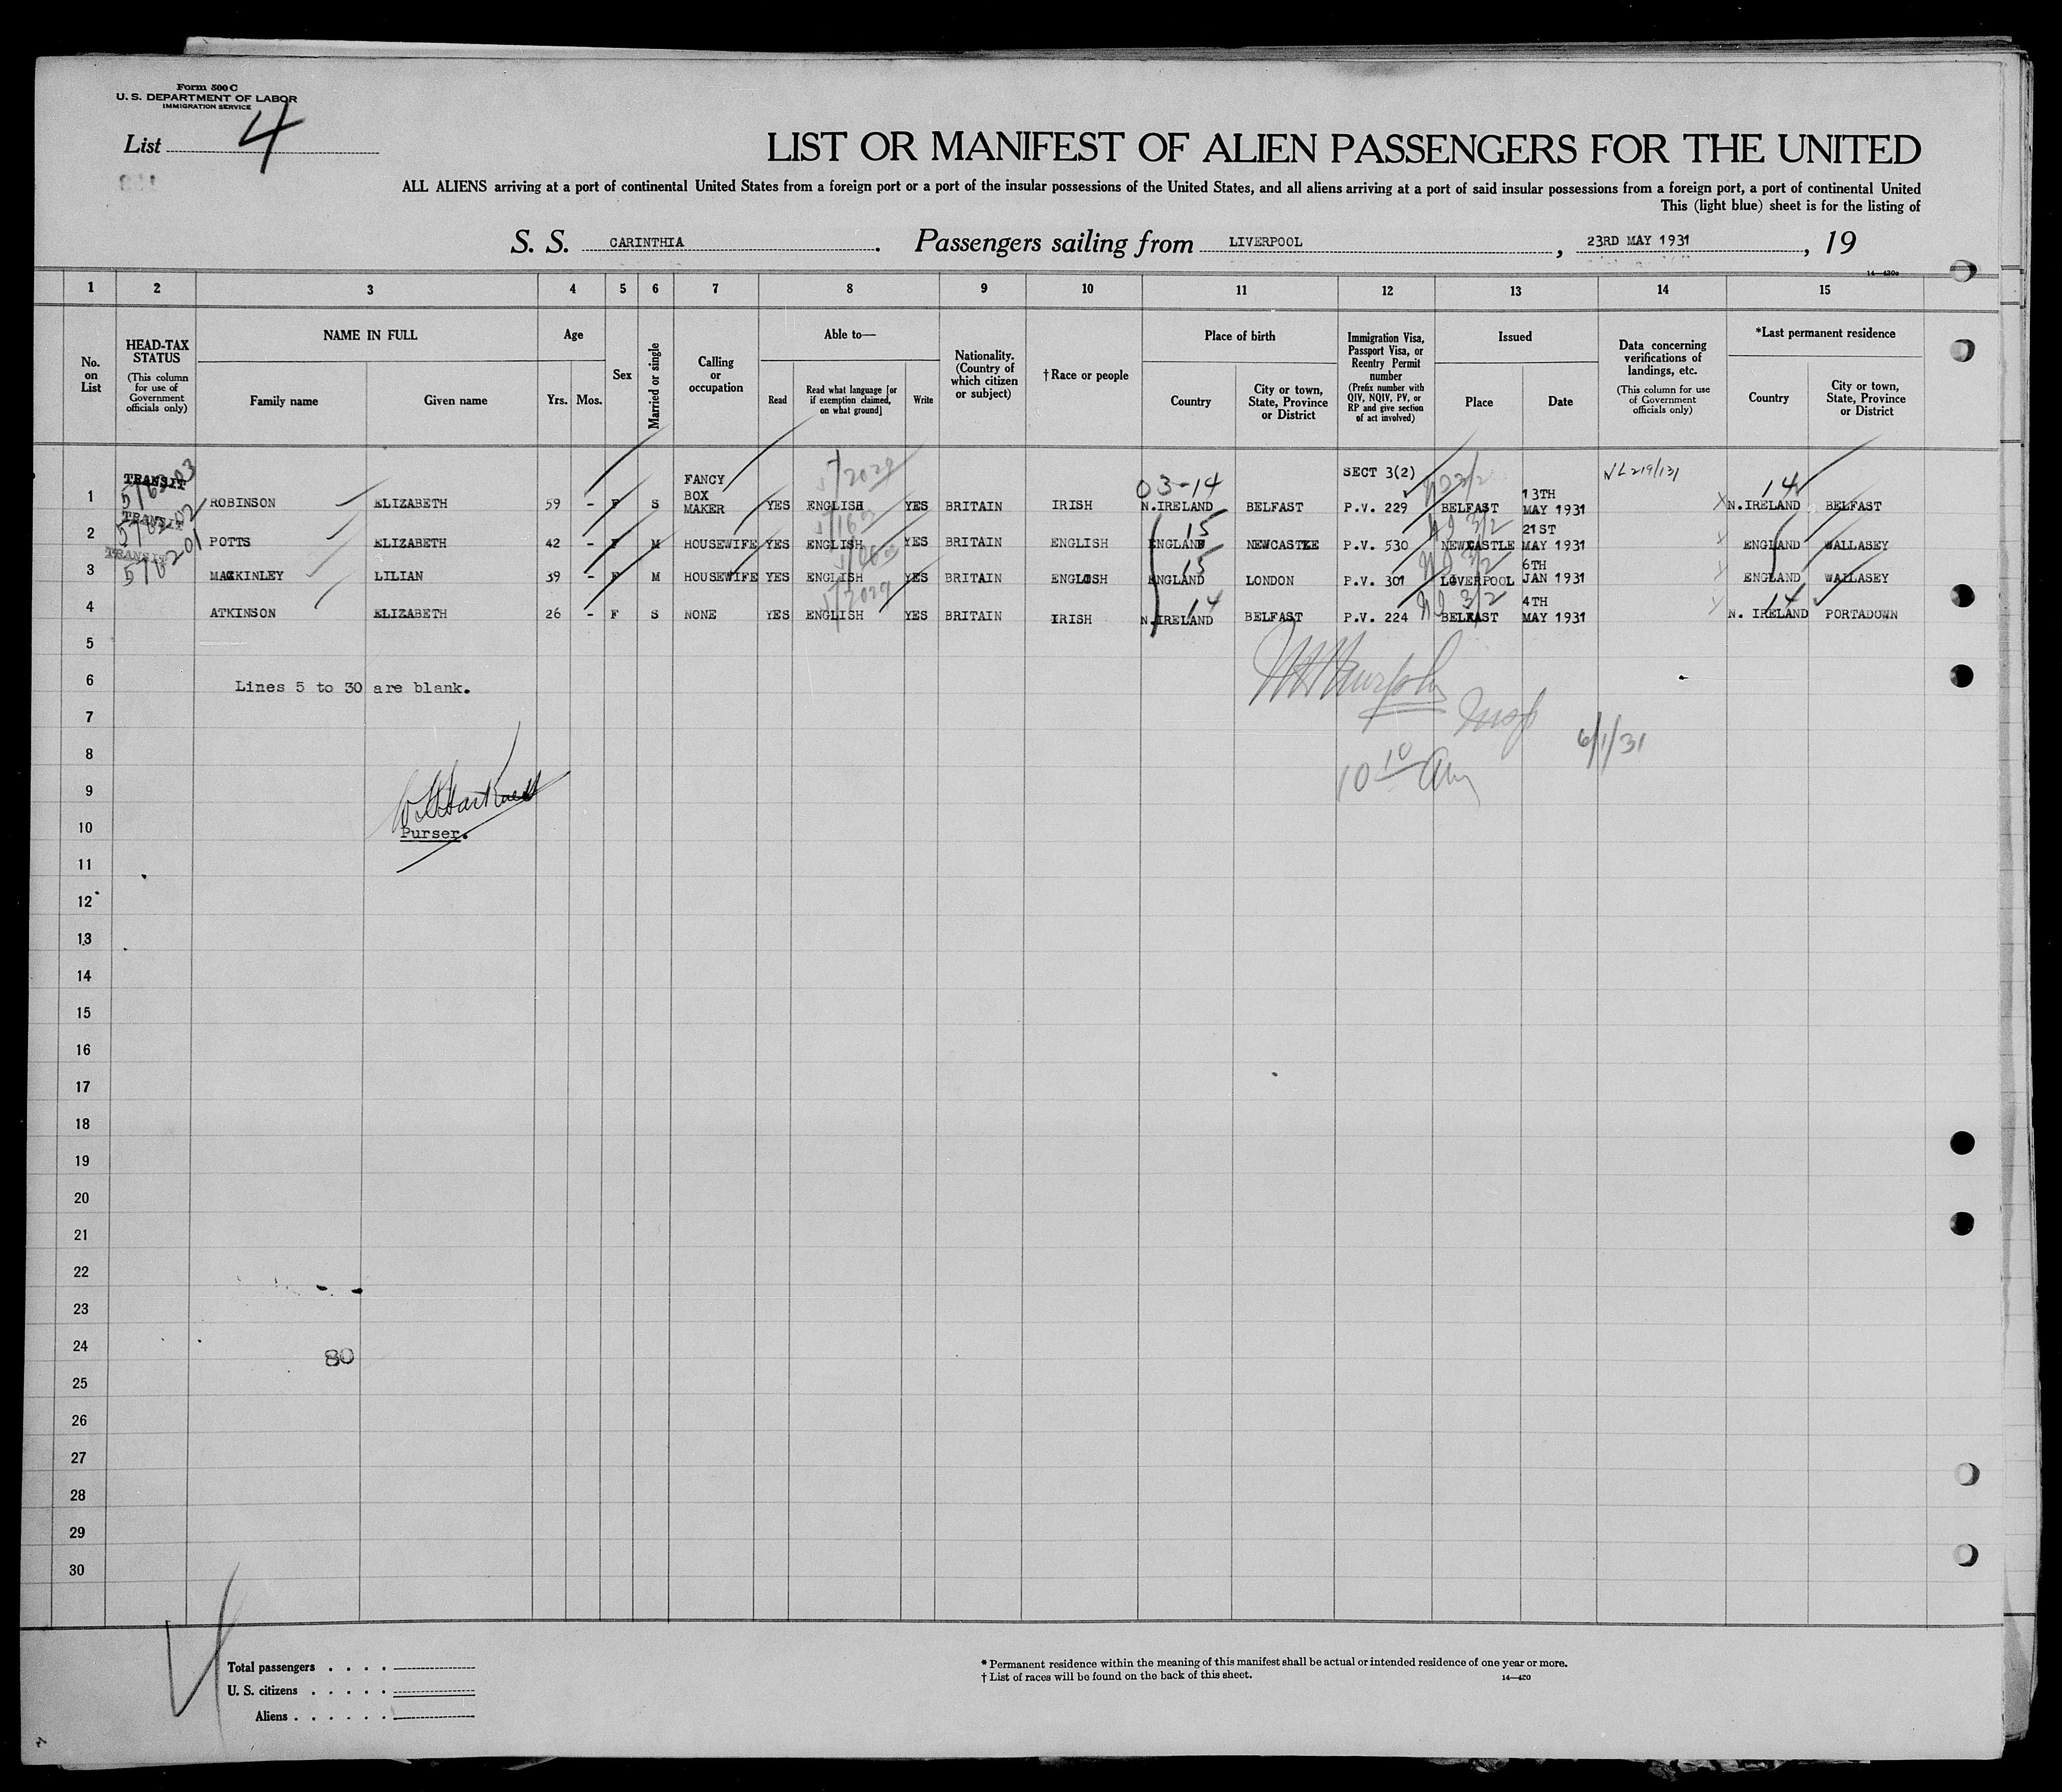 Form 500 C
U. S. DEPARTMENT OF LABOR
IMMIGRATION SERVICE
List 4
LIST OR MANIFEST OF ALIEN PASSENGERS FOR THE UNITED
ALL ALIENS arriving at a port of continental United States from a foreign port or a port of the insular possessions of the United States, and all aliens arriving at a port of said insular possessions from a foreign port, a port of continental United
This (light blue) sheet is for the listing of
S. S. CARINTHIA. Passengers sailing from LIVERPOOL, 23RD MAY 1931, 19
14—430a
1 2 3 4 5 6 7 8 9 10 11 12 13 14 15
No. on List
HEAD-TAX STATUS (This column for use of Government officials only)
NAME IN FULL
Family name
Given name
Age
Yrs. Mos.
Sex
Married or single
Calling or occupation
Able to—
Read
Read what language [or if exemption claimed, on what ground]
Write
Nationality. (Country of which citizen or subject)
† Race or people
Place of birth
Country
City or town, State, Province or District
Immigration Visa, Passport Visa, or Reentry Permit number (Prefix number with QIV, NQIV, PV, or RP and give section of act involved)
Issued
Place
Date
Data concerning verifications of landings, etc. (This column for use of Government officials only)
*Last permanent residence
Country
City or town, State, Province or District
TRANSIT 03-14 SECT 3(2) 14
1 ROBINSON ELIZABETH 59 - F S FANCY BOX MAKER YES ENGLISH YES BRITAIN IRISH N.IRELAND BELFAST P.V. 229 BELFAST 13TH MAY 1931 N.IRELAND BELFAST
TRANSIT 15
2 POTTS ELIZABETH 42 - F M HOUSEWIFE YES ENGLISH YES BRITAIN ENGLISH ENGLAND NEWCASTLE P.V. 530 NEWCASTLE 21ST MAY 1931 ENGLAND WALLASEY
TRANSIT 15
3 MACKINLEY LILIAN 39 - F M HOUSEWIFE YES ENGLISH YES BRITAIN ENGLISH ENGLAND LONDON P.V. 301 LIVERPOOL 6TH JAN 1931 ENGLAND WALLASEY
14 14
4 ATKINSON ELIZABETH 26 - F S NONE YES ENGLISH YES BRITAIN IRISH N.IRELAND BELFAST P.V. 224 BELFAST 4TH MAY 1931 N. IRELAND PORTADOWN
5
6 Lines 5 to 30 are blank.
7
8 6/1/31
9 10 10 am
10 Purser.
11
12
13
14
15
16
17
18
19
20
21
22
23
24 80
25
26
27
28
29
30
Total passengers . . . .
U. S. citizens . . . . .
Aliens . . . . . .
* Permanent residence within the meaning of this manifest shall be actual or intended residence of one year or more.
† List of races will be found on the back of this sheet.
14—420